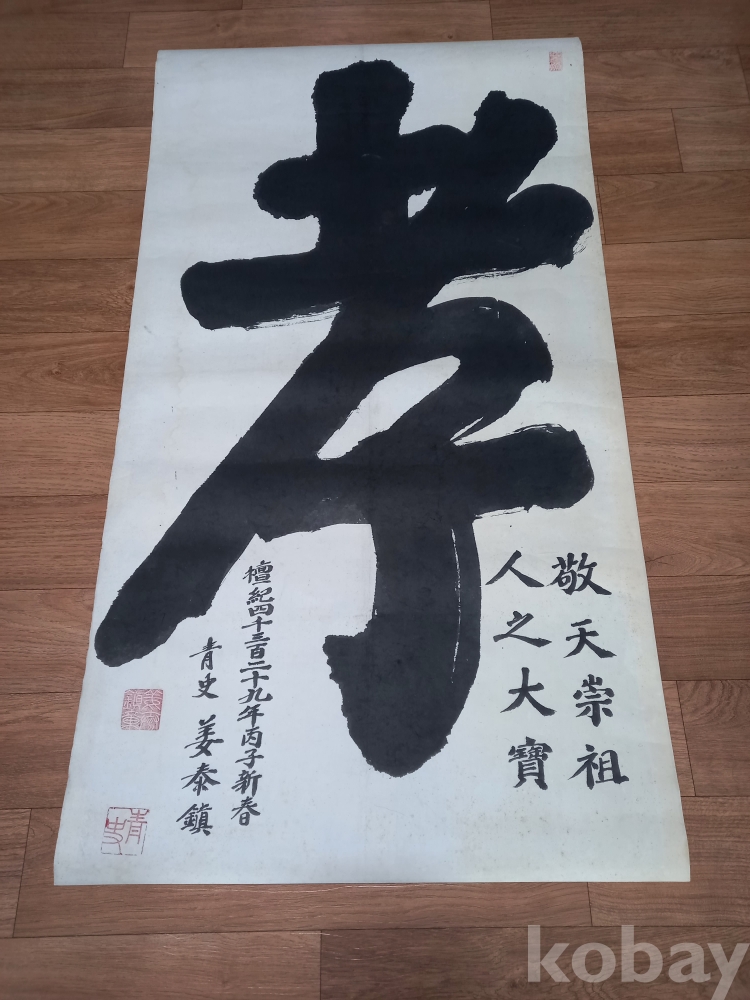 孝
敬天崇祖
人之大寶
檀紀四千三百二十九年丙子新春
青史 姜泰鎭
青史
kobay